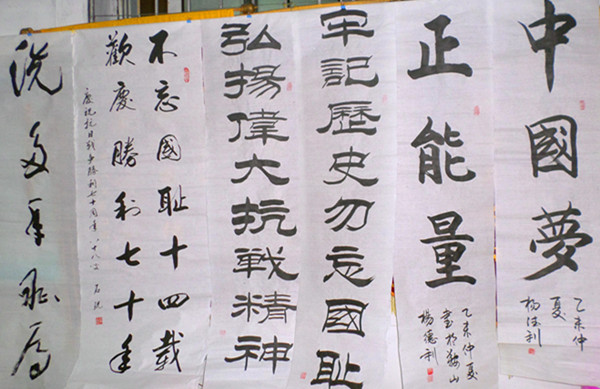 中國夢
乙未仲
夏
楊德利
正能量
乙未仲夏
書於鞍山
楊德利
牢記歷史勿忘國耻
弘揚偉大抗戦精神
不忘國耻十四載
歡慶勝利七十年
慶祝抗日戰爭勝利七十周年